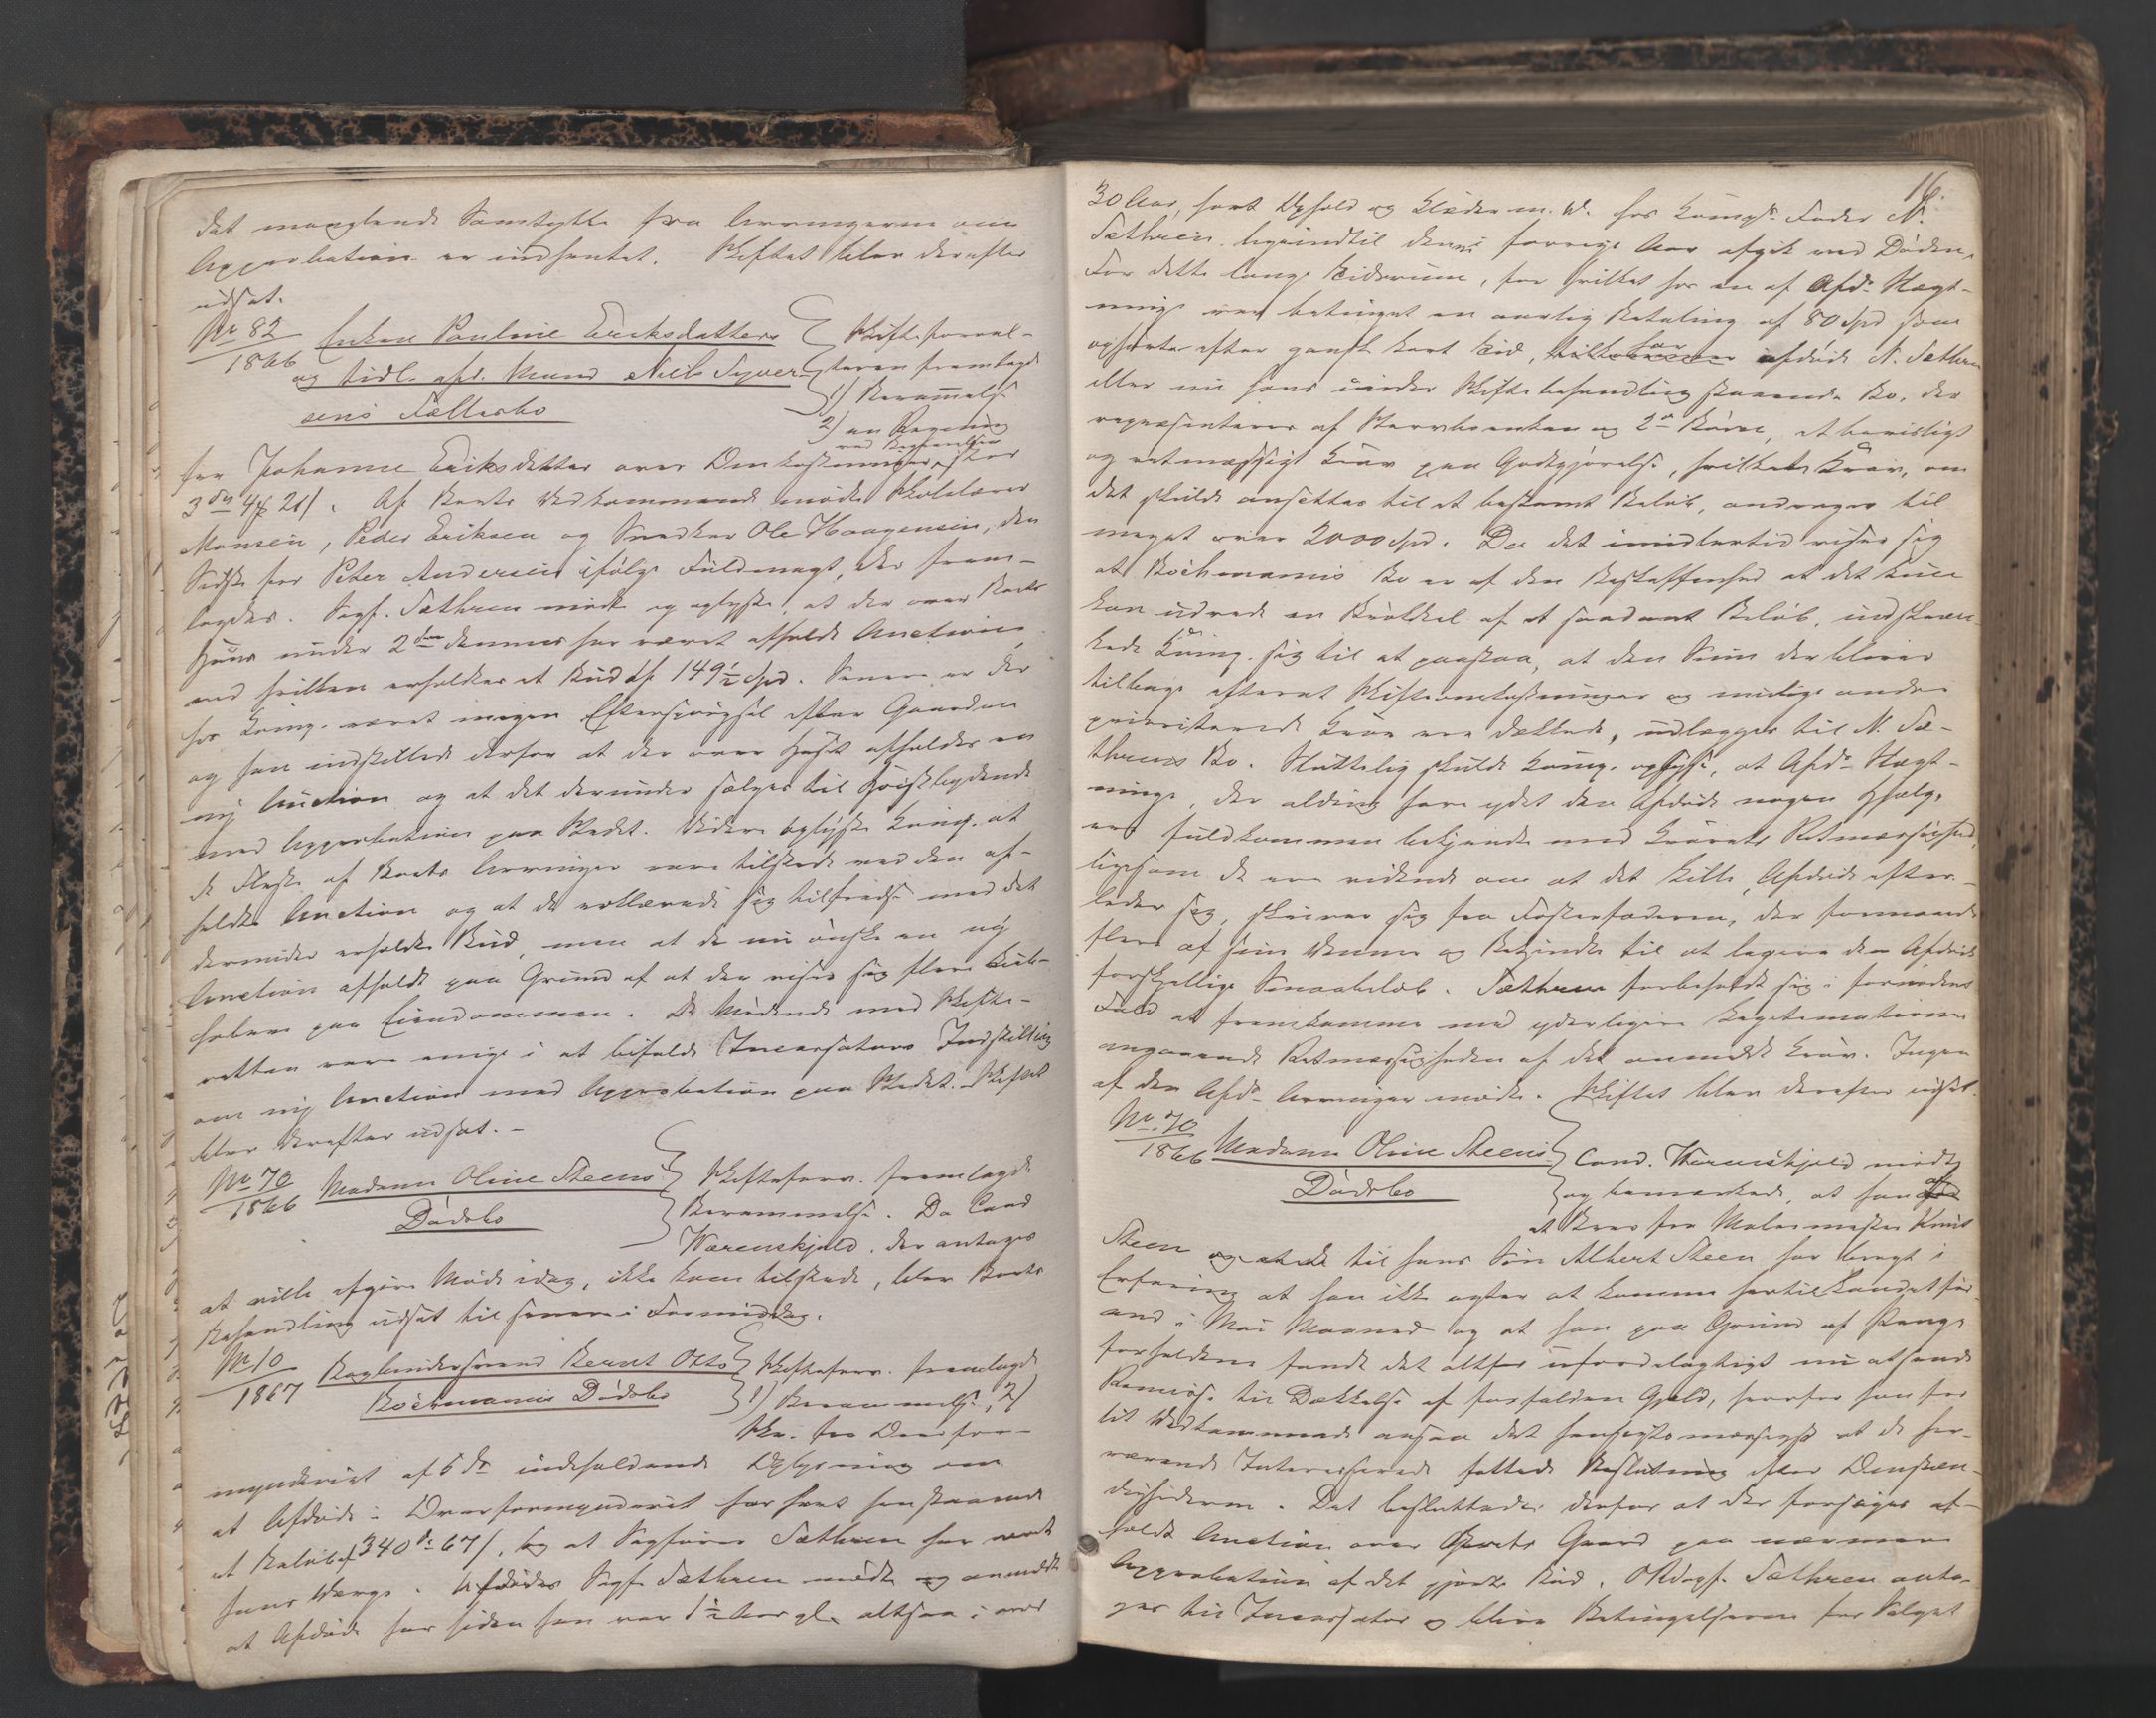 det manglende Samtykke fra Arvingerne om
Approbation er indhentet. Skiftet blev derefter
udsat.
No 82
1866
Enken Pauline Eriksdatters
og tidl. afd. Mand Niels Syver-
sens Fællesbo
Skifteforval-
teren fremlagde
1) Berammelse
2) en Regning
fra Johanne Eriksdatter over Omkostninger ved Begravelsen stor
3 Spd 4 # 21 s. Af Boets Vedkommende mødte Skolelærer
Monsen, Peder Eriksen og Snedker Ole Haagensen, den
Sidste for Peter Andersen ifølge Fuldmagt, der frem-
lagdes. Sagf. Sæthren mødte og oplyste, at der over Boets
Huus under 2den dennes har været afholdt Auction
ved hvilken erholdtes et Bud af 149½ Spd. Senere er der
hos Comp. været megen Efterspørgsel efter Gaarden
og han indstillede derfor at der over Huset afholdes en
ny Auction og at det derunder sælges til Høistbydende
med Approbation paa Stedet. Videre oplyste Comp. at
de Fleste af Boets Arvinger vare tilstede ved den af-
holdte Auction og at de erklærede sig tilfredse med det
derunder erholdte Bud, men at de nu ønske en ny
Auction afholdt paa Grund af at der viser sig flere Lieb-
habere paa Eiendommen. De Mødende med Skifte-
retten vare enige i at bifalde Incassators Indstilling
om ny Auction med Approbation paa Stedet. Skiftet
blev derefter udsat. -
No 70
1866
Madame Oline Steens
Dødsbo
Skifteforv. fremlagde
Berammelse. Da Cand
Wærenskjold, der antages
at ville afgive Møde idag, ikke kom tilstede, blev Boets
Behandling udsat til senere i Formiddag.
No 10
1867
Bogbindersvend Bernt Otto
Bochmanns Dødsbo
Skifteforv. fremlagde
1) Berammelse, 2)
Skr. fra Overfor-
mynderiet af 5 ds indeholdende Oplysning om
at Afdøde i Overformynderiet har havt henstaaende
et Beløb af 340 Spd 67 s, og at Sagfører Sæthren har været
hans Værge. Sagf. Sæthren mødte og anmeldte
at Afdøde har siden han var 1½ Aar gl. altsaa i over
16.
30 Aar, havt Ophold og Klæder m. V. hos Comp. Fader N.
Sæthren, begyndtil denne forrige Aar afgik ved Døden,
For dette lange Tidsrum, for hvilket hos en af Afds Slægt-
ninge var betinget en aarlig Betaling af 80 Spd som
ophørte efter ganske kort Tid, har afdøde N. Sæthren
eller nu hans under Skiftebehandling staaende Bo, der
repræsenteres af Stervboenken og 2de Børn, et beviisligt
og retmæssigt Krav paa Godtgjørelse, hvilket Krav, om
det skulde ansættes til et bestemt Beløb, andrager til
meget over 2000 Spd. Da det imidlertid viser sig
at Bochmanns Bo er af den Beskaffenhed at det kun
kan udrede en Brøkdel af et saadant Beløb, indskræn-
kede Comp. sig til at paastaa, at den Sum der bliver
tilbage efterat Skifteomkostninger og mulige andre
prioriterede Krav ere dækkede, udlægges til N. Sæ-
threns Bo. Sluttelig skulde Comp. oplyse, at Afds Slægt-
ninge, der aldrig have ydet den Afdøde nogen Hjælp,
ere fuldkommen bekjendte med Kravets Retmæssighed,
ligesom de ere vidende om at det Lille, Afdøde efter-
lader sig, skriver sig fra Fosterfaderen, der formaaede
flere af sine Venner og Bekjendte til at legere den Afdøde
forskjellige Smaabeløb. Sæthren forbeholdt sig i fornødent
Fald at fremkomme med yderligere Legitimationer
angaaende Retmæssigheden af det anmeldte Krav. Ingen
af den Afds Arvinger mødte. Skiftet blev derefter udsat.
No. 70
1866
Madame Oline Steens
Dødsbo
Cand. Wærenskjold mødte
og bemærkede, at han af
et Brev fra Malermester Knud
Steen til hans Søn Albert Steen har bragt i
Erfaring at han ikke agter at komme hertil Landet før
end i Mai Maaned og at han paa Grund af Penge
forholdene fandt det altfor ufordelagtigt nu at sende
Remisse til Dækkelse af forfalden Gjæld, hvorfor han for
sit Vedkommende ansaa det hensigtsmæssigst at de her-
værende Interesserede fattede Beslutning efter Omstæn-
dighederne. Det besluttedes derfor at der forsøges af-
holdt Auction over Boets Gaard paa nærmere
Approbation af det gjorte Bud. ORSagf. Sæthren anta-
ges til Incassator og blive Betingelserne for Salget